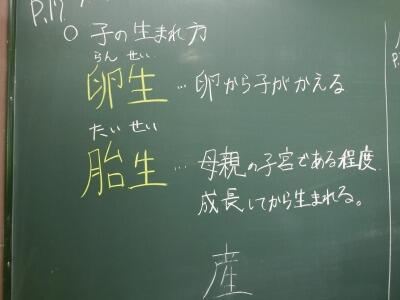 P.17
○ 子の生まれ方
らん せい
卵生…卵から子がかえる
たい せい
胎生…母親の子宮である程度
成長してから生まれる。
産